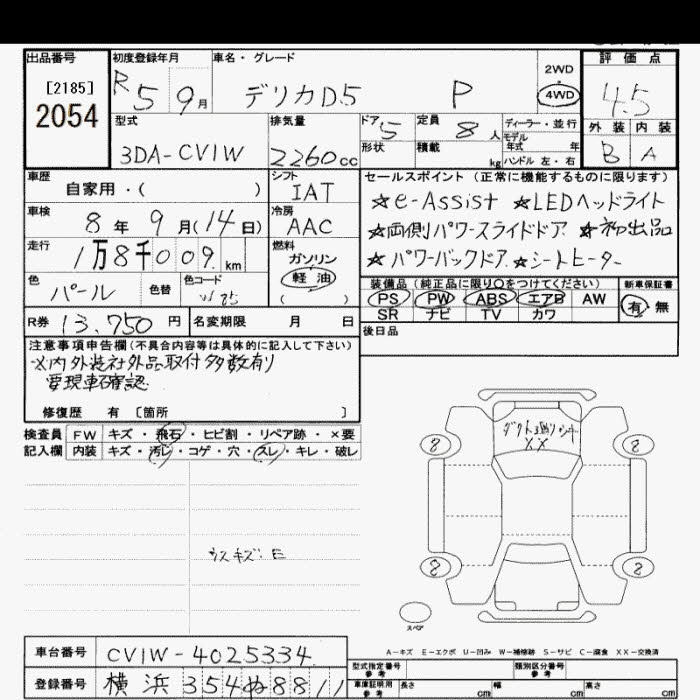 出品番号
[2185]
2054
初度登録年月
R5 9月
車名・グレード
デリカD5 P
2WD
4WD
評価点
4.5
外装 内装
B A
型式
3DA-CV1W
排気量
2260cc
ドア 5
定員 8人
ディーラー・並行
モデル
年式 年
ハンドル 左・右
形状
積載 kg
車歴
自家用・( )
シフト
IAT
車検
8年9月(14日)
冷房
AAC
走行
1万8千009km
燃料
ガソリン
軽油
( )
色
パール
色替
色コード
W85
セールスポイント(正常に機能するものに限ります)
☆e-Assist ☆LEDヘッドライト
☆両側パワースライドドア ☆初出品
☆パワーバックドア ☆シートヒーター
装備品(純正品に限り○をつけてください)
新車保証書
PS PW ABS エアB AW
SR ナビ TV カワ
有 無
R券 13,750円
名変期限 月 日
後日品
注意事項申告欄(不具合内容等は具体的に記入して下さい)
※内外装社外品取付多数有り
要現車確認
修復歴 有 〔箇所 〕
検査員 FW キズ・飛石・ヒビ割・リペア跡・×要
記入欄 内装 キズ・汚レ・コゲ・穴・スレ・キレ・破レ
ウスキズ:E
XX
8 8
8 8
スペア
A-キズ E-エクボ U-凹み W-補修跡 S-サビ C-腐食 XX-交換済
車台番号 CV1W-4025334
登録番号 横浜354ぬ8811
型式指定番号
参考
類別区分番号
参考
車庫証明用
参考
長さ cm 幅 cm 高さ cm